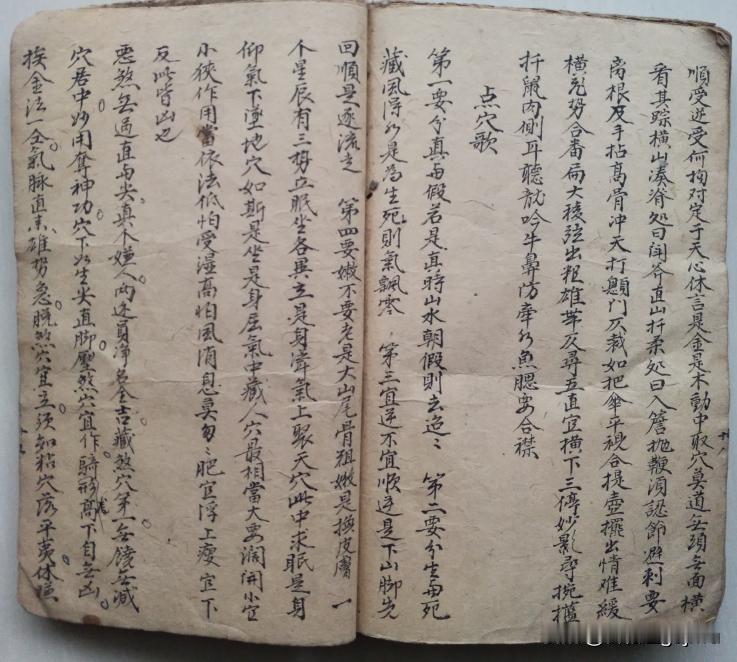 順受逆受何拘对定于天心休言是金是木動中取穴莫道无頭无面橫
看其踪橫山湊脊处曰開斧直山扦柔处曰入簷抛鞭須認節避刺要
离根及手拈高骨冲天打顋門仄裁如把傘平視合提壺擺出情难緩
橫充势合番局大稜弦出粗雄華及尋五直宜橫下三停妙影尋捥橀
扦鼠肉側耳聽龙吟牛鼻防牽水魚腮要合襟
点穴歌
第一要分真与假若是真時山水朝假則去迢迢 第二要分生与死
藏風得水是為生死則氣飄零 第三宜逆不宜順逆是下山脚先
回順是逐流走 第四要嫩不要老是大山尾骨粗嫩是換皮膚 一
个星辰有三势立眠坐各異立是身聳氣上聚天穴此中求眠是身
仰氣下墜地穴如斯是坐是身屈氣中藏人穴最相當大要濶開小宜
小狹作用當依法低怕受湿高怕風消息莫匆匆肥宜浮上瘦宜下
反此皆凶也
惡煞无過直与尖真个嫌人向走員淨名全吉藏煞穴第一无饒无減
穴居中妙用奪神功穴下必生尖直脚壓煞穴宜作騎形高下自无凶
挨金法一全氣脉直来雄势急脱煞穴宜立須如粘穴落平夷休